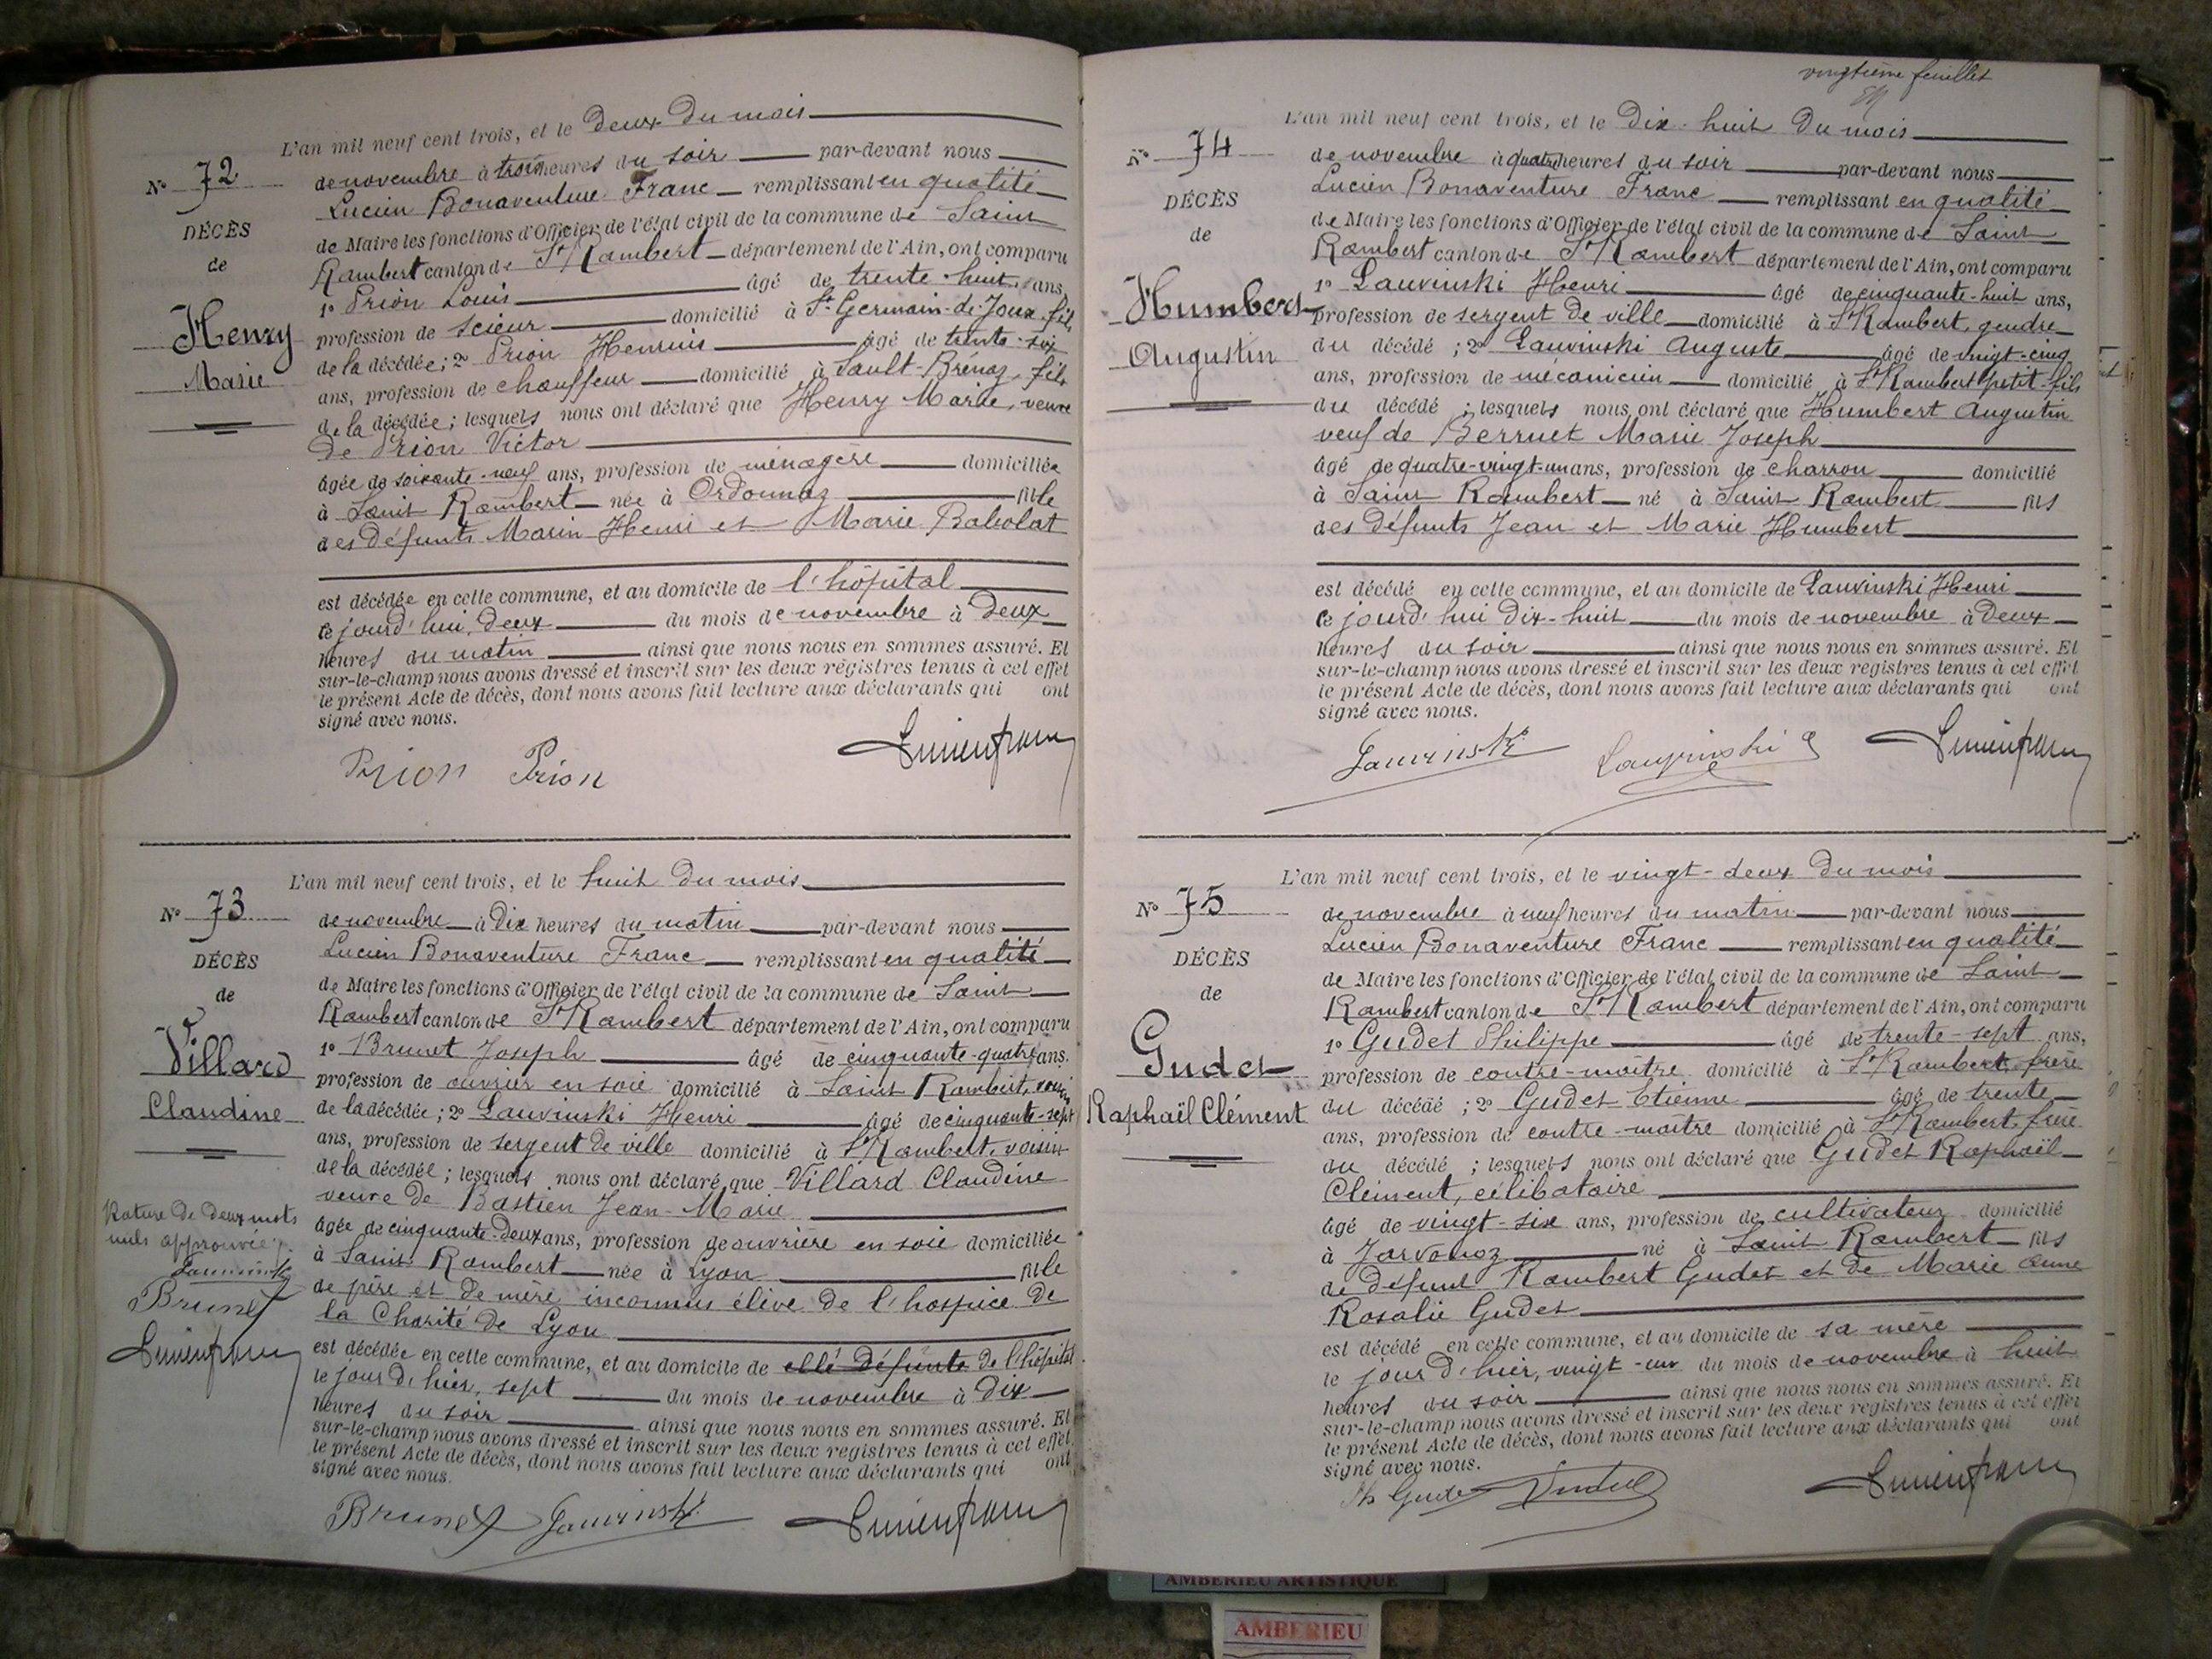 L'an mil neuf cent trois, et le Deux du mois
N° 72
de novembre à trois heures du soir par-devant nous
Lucien Bonaventure Franc remplissant en qualité
DÉCÈS
de Maire les fonctions d'Officier de l'état civil de la commune de Saint
de
Rambert canton de St Rambert département de l'Ain, ont comparu
1° Prion Louis âgé de trente-huit ans,
Henry
profession de scieur domicilié à St Germain-de-Joux, fils
de la décédée; 2° Prion Henriis âgé de trente-six
Marie
ans, profession de chauffeur domicilié à Sault-Brénaz, fils
de la décédée; lesquels nous ont déclaré que Henry Marie, veuve
de Prion Victor
âgée de soixante-neuf ans, profession de ménagère domiciliée
à Saint Rambert née à Ordonnaz fille
des défunts Marin Henri et Marie Rabolat
est décédée en cette commune, et au domicile de l'hôpital
ce jourd'hui, deux du mois de novembre à deux
heures du matin ainsi que nous nous en sommes assuré. Et
sur-le-champ nous avons dressé et inscrit sur les deux registres tenus à cet effet
le présent Acte de décès, dont nous avons fait lecture aux déclarants qui ont
signé avec nous.
Prion Prion Lucien franc
L'an mil neuf cent trois, et le huit du mois
N° 73
de novembre à Dix heures du matin par-devant nous
Lucien Bonaventure Franc remplissant en qualité
DÉCÈS
de Maire les fonctions d'Officier de l'état civil de la commune de Saint
de
Rambert canton de St Rambert département de l'Ain, ont comparu
Villard
1° Brunet Joseph âgé de cinquante-quatre ans,
profession de ouvrier en soie domicilié à Saint Rambert, voisin
Claudine
de la décédée; 2° Lauvinski Henri âgé de cinquante-sept
ans, profession de sergent de ville domicilié à St Rambert, voisin
de la décédée; lesquels nous ont déclaré que Villard Claudine
veuve de Bastien Jean-Marie
Rature de deux mots
nuls approuvée
âgée de cinquante-deux ans, profession de ouvrière en soie domiciliée
à Saint Rambert née à Lyon fille
Lauvinski
de père et de mère inconnus élève de l'hospice de
Brunet
la Charité de Lyon
Lucien franc
est décédée en cette commune, et au domicile de elle défunte de l'hôpital
le jour d'hier, sept du mois de novembre à dix
heures du soir ainsi que nous nous en sommes assuré. Et
sur-le-champ nous avons dressé et inscrit sur les deux registres tenus à cet effet
le présent Acte de décès, dont nous avons fait lecture aux déclarants qui ont
signé avec nous.
Brunet Lauvinski Lucien franc
vingtième feuillet
L'an mil neuf cent trois, et le Dix-huit du mois
N° 74
de novembre à quatre heures du soir par-devant nous
Lucien Bonaventure Franc remplissant en qualité
DÉCÈS
de Maire les fonctions d'Officier de l'état civil de la commune de Saint
de
Rambert canton de St Rambert département de l'Ain, ont comparu
1° Lauvinski Henri âgé de cinquante-huit ans,
Humbert
profession de sergent de ville domicilié à St Rambert, gendre
Augustin
du décédé; 2° Lauvinski Auguste âgé de vingt-cinq
ans, profession de mécanicien domicilié à St Rambert petit-fils
du décédé; lesquels nous ont déclaré que Humbert Augustin
veuf de Berruet Marie Joseph
âgé de quatre-vingt-un ans, profession de charron domicilié
à Saint Rambert né à Saint Rambert fils
des défunts Jean et Marie Humbert
est décédé en cette commune, et au domicile de Lauvinski Henri
ce jourd'hui Dix-huit du mois de novembre à Deux
heures du soir ainsi que nous nous en sommes assuré. Et
sur-le-champ nous avons dressé et inscrit sur les deux registres tenus à cet effet
le présent Acte de décès, dont nous avons fait lecture aux déclarants qui ont
signé avec nous.
Lauvinski Lauvinski a Lucien franc
L'an mil neuf cent trois, et le vingt-deux du mois
N° 75
de novembre à neuf heures du matin par-devant nous
Lucien Bonaventure Franc remplissant en qualité
DÉCÈS
de Maire les fonctions d'Officier de l'état civil de la commune de Saint
de
Rambert canton de St Rambert département de l'Ain, ont comparu
1° Gudet Philippe âgé de trente-sept ans,
Gudet
profession de contre-maître domicilié à St Rambert, frère
Raphaël Clément
du décédé; 2° Gudet Etienne âgé de trente
ans, profession de contre-maître domicilié à St Rambert, frère
du décédé; lesquels nous ont déclaré que Gudet Raphaël
Clément, célibataire
âgé de vingt-six ans, profession de cultivateur domicilié
à Javornoz né à Saint Rambert fils
de défunt Rambert Gudet et de Marie Anne
Rosalie Gudet
est décédé en cette commune, et au domicile de sa mère
le jour d'hier, vingt-un du mois de novembre à huit
heures du soir ainsi que nous nous en sommes assuré. Et
sur-le-champ nous avons dressé et inscrit sur les deux registres tenus à cet effet
le présent Acte de décès, dont nous avons fait lecture aux déclarants qui ont
signé avec nous.
Ph Gudet Lucien franc
AMBERIEU ARTISTIQUE
AMBERIEU